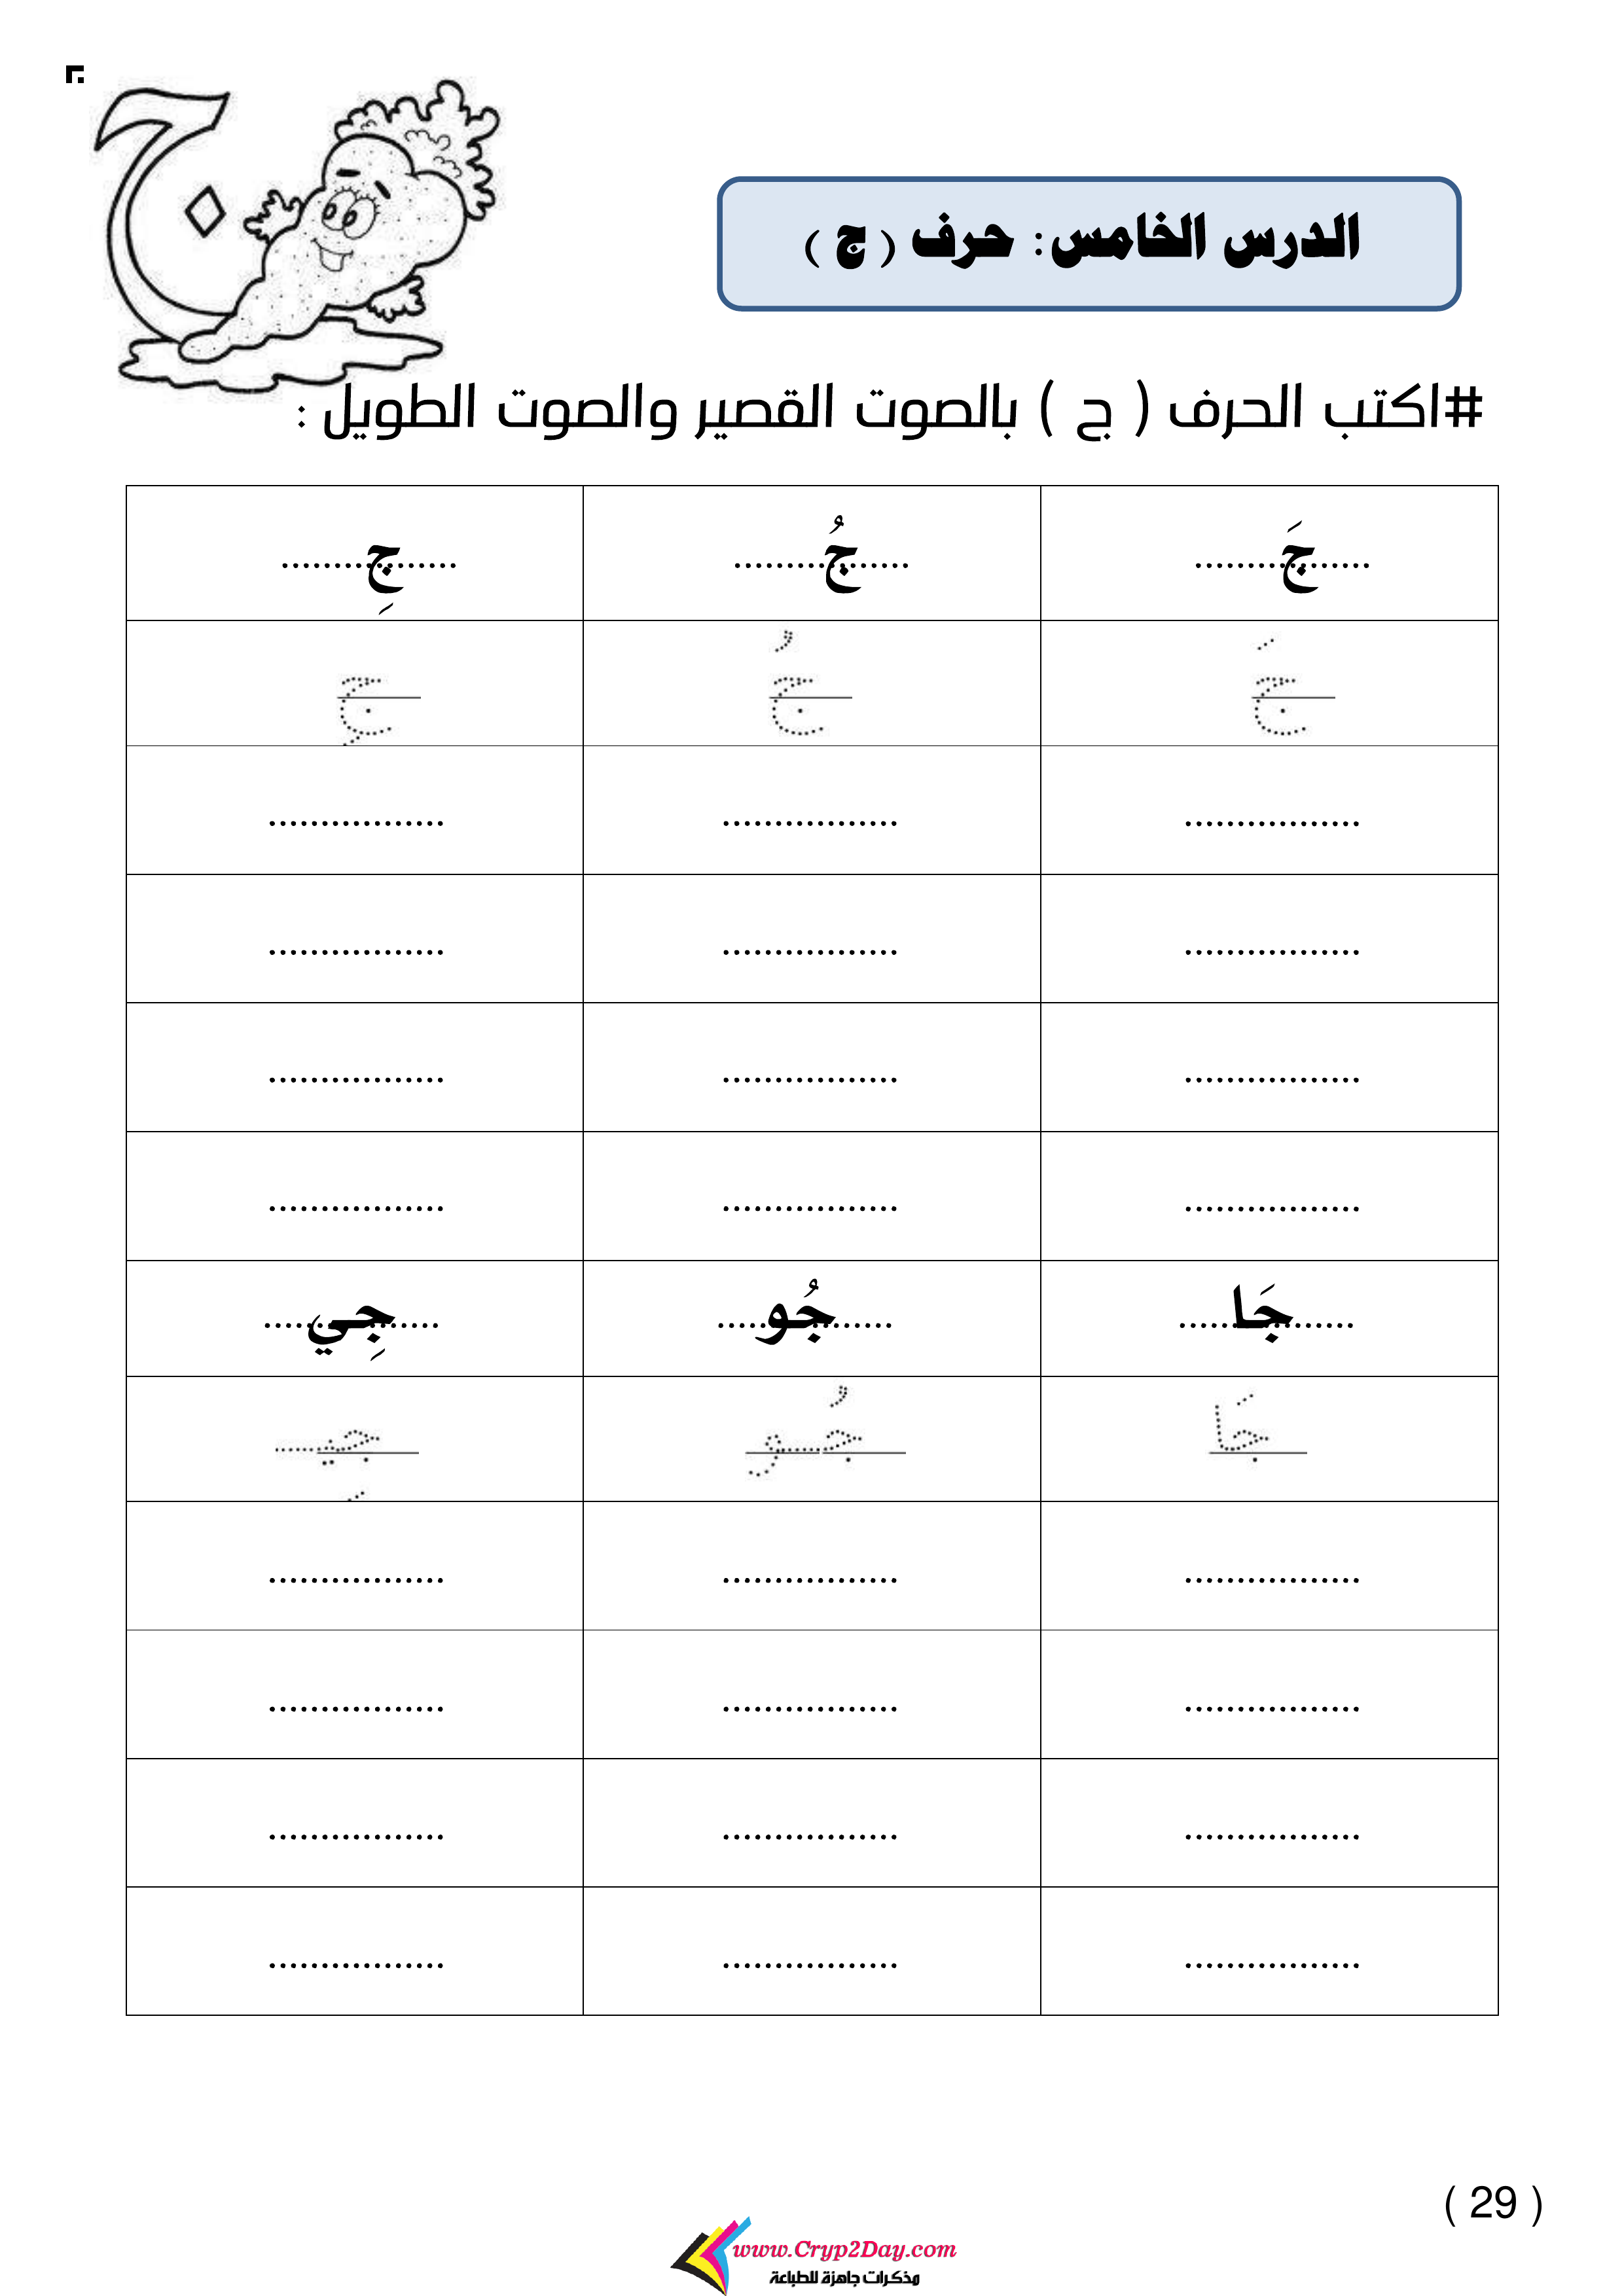 ج
الدرس الخامس: حرف ( ج )
#اكتب الحرف ( ج ) بالصوت القصير والصوت الطويل :
جَ................ جُ................ جِ................
جَ جُ جِ
................. ................. .................
................. ................. .................
................. ................. .................
................. ................. .................
جَا................. جُو................. جِي.................
جَا جُو جِي
................. ................. .................
................. ................. .................
................. ................. .................
................. ................. .................
( 29 )
www.Cryp2Day.com
مذكرات جاهزة للطباعة